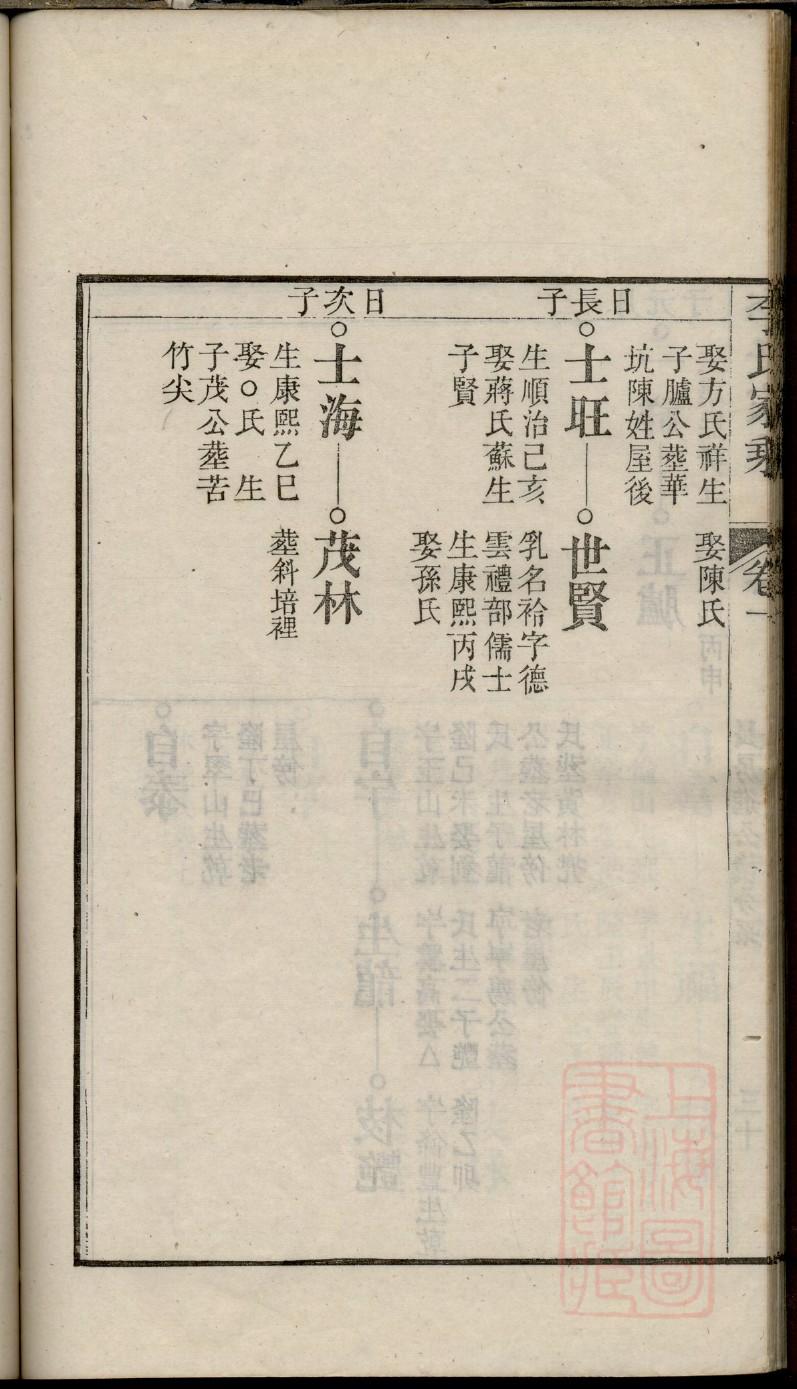 李氏家乘
卷一
娶方氏祥生
子臚公塟華
坑陳姓屋後
娶陳氏
日長子
士旺
生順治己亥
娶蔣氏蘇生
子賢
世賢
乳名袷字德
雲禮部儒士
生康熙丙戌
娶孫氏
日次子
士海
生康熙乙巳
娶○氏　生
子茂公塟苦
竹尖
茂林
塟斜培裡
上海圖
書館藏